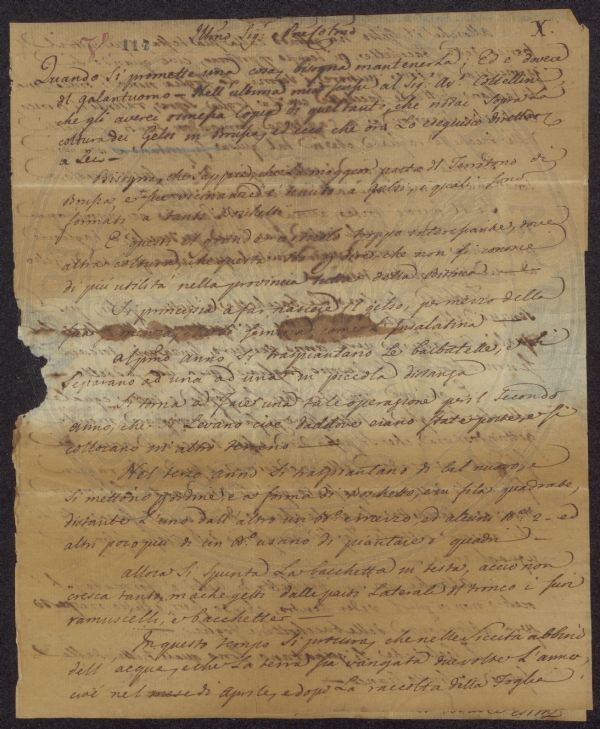 X.
Illmo Sigr. Pne Colmo
Quando si promette una cosa, bisogna mantenerla; Ed è dovere
di galantuomo - Nell'ultima mia scrissi al Sigr.
che gli averei rimessa copia di quel tanto, che notai sopra la
coltura dei Gelsi in Brussa, ed ecco che ora Lo eseguisco diretto
a Lei -
Bisogna, che sappia, che La maggior parte del Territorio di
Brussa, e sue vicinanze è tenuta a Gelsi, e quasi sono
formati a tanti Boschetti -
E questo è un articolo troppo interessante, dove
altra coltura che questa che non si conosce
di più utilità nella provincia tutta detta Bitinia
Si principia a far nascere il gelso, per mezzo della
semenza, come l'insalatina
Al pmo anno si traspiantano Le barbatelle, e si
separano ad una ad una in piccola distanza
Si torna a fare una tale operazione per il secondo
anno, che si Levano cioè daddove erano state poste, e si
collocano in altro terreno -
Nel terzo anno si traspiantano di bel nuovo, e
si mettono per ordine, e a forma di boschetto, e in fila quadrate,
distante L'uno dall'altro un Bo. e mezzo ed alcuni 2 - e
altri poco più di un Bo. usano di piantare i quadri -
Allora si spunta La bacchetta in testa, acciò non
cresca tanto, ma che getti dalle parti Laterali del tronco i suoi
ramuscelli, e bacchette -
In questo tempo si procura, che nelle siccità abbino
dell'acqua, e che La terra sia vangata due volte L'anno,
cioè nel mese di Aprile, e dopo La raccolta della Foglia